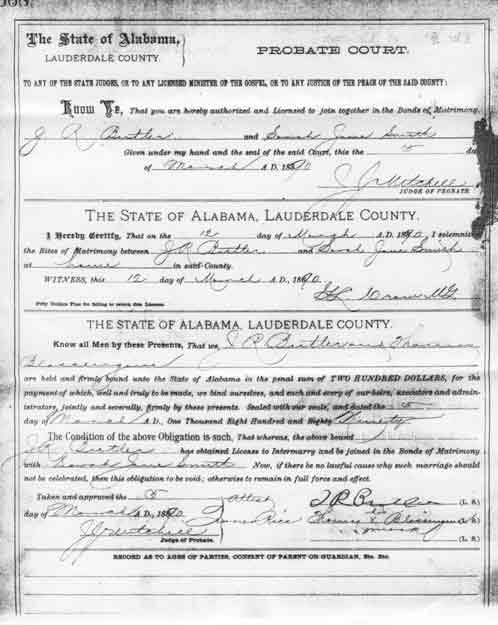 The State of Alabama, LAUDERDALE COUNTY.
PROBATE COURT.
TO ANY OF THE STATE JUDGES, OR TO ANY LICENSED MINISTER OF THE GOSPEL, OR TO ANY JUSTICE OF THE PEACE OF THE SAID COUNTY:
Know Ye, That you are hereby authorized and Licensed to join together in the Bonds of Matrimony,
J R Butler and Sarah Jane Smith
Given under my hand and the seal of the said Court, this the 5 day
of March A.D. 1890
J J Mitchell
JUDGE OF PROBATE.
THE STATE OF ALABAMA, LAUDERDALE COUNTY.
I Hereby Certify, That on the 12 day of March A.D. 1890, I solemnized
the Rites of Matrimony between J R Butler and Sarah Jane Smith
at in said County.
WITNESS, this 12 day of March A.D., 1890.
M G
Fifty Dollars Fine for failing to return this License.
THE STATE OF ALABAMA, LAUDERDALE COUNTY.
Know all Men by these Presents, That we J R Butler and Thomas
are held and firmly bound unto the State of Alabama in the penal sum of TWO HUNDRED DOLLARS, for the
payment of which, well and truly to be made, we bind ourselves, and each and every of our heirs, executors and admin-
istrators, jointly and severally, firmly by these presents. Sealed with our seals, and dated the 5
day of March A.D., One Thousand Eight Hundred and Eighty Ninety
The Condition of the above Obligation is such, That whereas, the above bound
J R Butler has obtained License to Intermarry and be joined in the Bonds of Matrimony
with Sarah Jane Smith Now, if there be no lawful cause why such marriage should
not be celebrated, then this obligation to be void; otherwise to remain in full force and effect.
Taken and approved the 5 attest J R Butler (L. S.)
day of March A.D., 1890 Rice Thomas his X (L. S.)
J J Mitchell mark (L. S.)
Judge of Probate.
RECORD AS TO AGES OF PARTIES, CONSENT OF PARENT OR GUARDIAN, Etc. Etc.